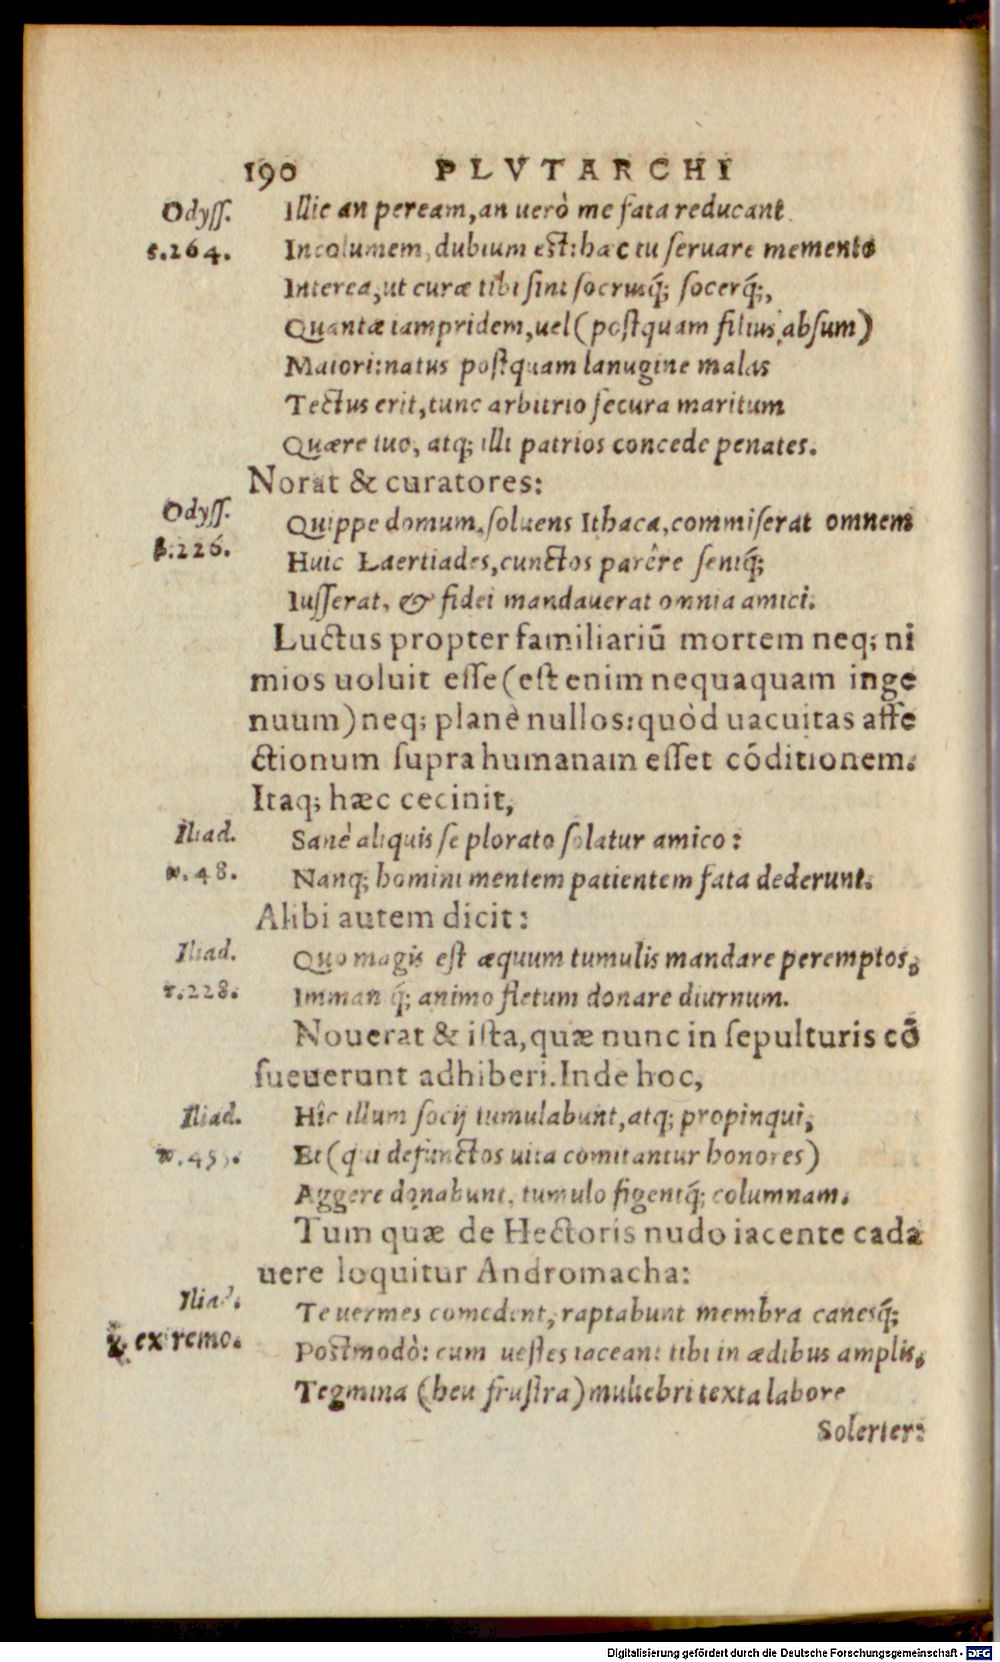 190 PLVTARCHI
Odyss. Illic an peream, an uerò me fata reducant
σ.264. Incolumem, dubium est: hæc tu seruare memento
Interea, ut curæ tibi sint socrusq́; socerq́;,
Quantæ iampridem, uel (postquam filius absum)
Maiori: natus postquam lanugine malas
Tectus erit, tunc arbitrio secura maritum
Quære tuo, atq; illi patrios concede penates.
Norat & curatores:
Odyss. Quippe domum, soluens Ithaca, commiserat omnem
β.226. Huic Laertiades, cunctos parêre seniq́;
Iusserat, & fidei mandauerat omnia amici.
Luctus propter familiariũ mortem neq; ni
mios uoluit esse (est enim nequaquam inge
nuum) neq; planè nullos: quòd uacuitas affe
ctionum supra humanam esset cõditionem.
Itaq; hæc cecinit,
Iliad. Sanè aliquis se plorato solatur amico:
ω.48. Nanq; homini mentem patientem fata dederunt.
Alibi autem dicit:
Iliad. Quo magis est æquum tumulis mandare peremptos,
τ.228. Immani q́; animo fletum donare diurnum.
Nouerat & ista, quæ nunc in sepulturis cõ
sueuerunt adhiberi. Inde hoc,
Iliad. Hîc illum socij tumulabunt, atq; propinqui,
Et (qui defunctos uita comitantur honores)
Aggere donabunt, tumulo figentq́; columnam.
Tum quæ de Hectoris nudo iacente cada
uere loquitur Andromacha:
Iliad. Te uermes comedent, raptabunt membra canesq́;
χ. extremo. Postmodò: cum uestes iaceant tibi in ædibus amplis,
Tegmina (heu frustra) muliebri texta labore
Solerter:
Digitalisierung gefördert durch die Deutsche Forschungsgemeinschaft - DFG